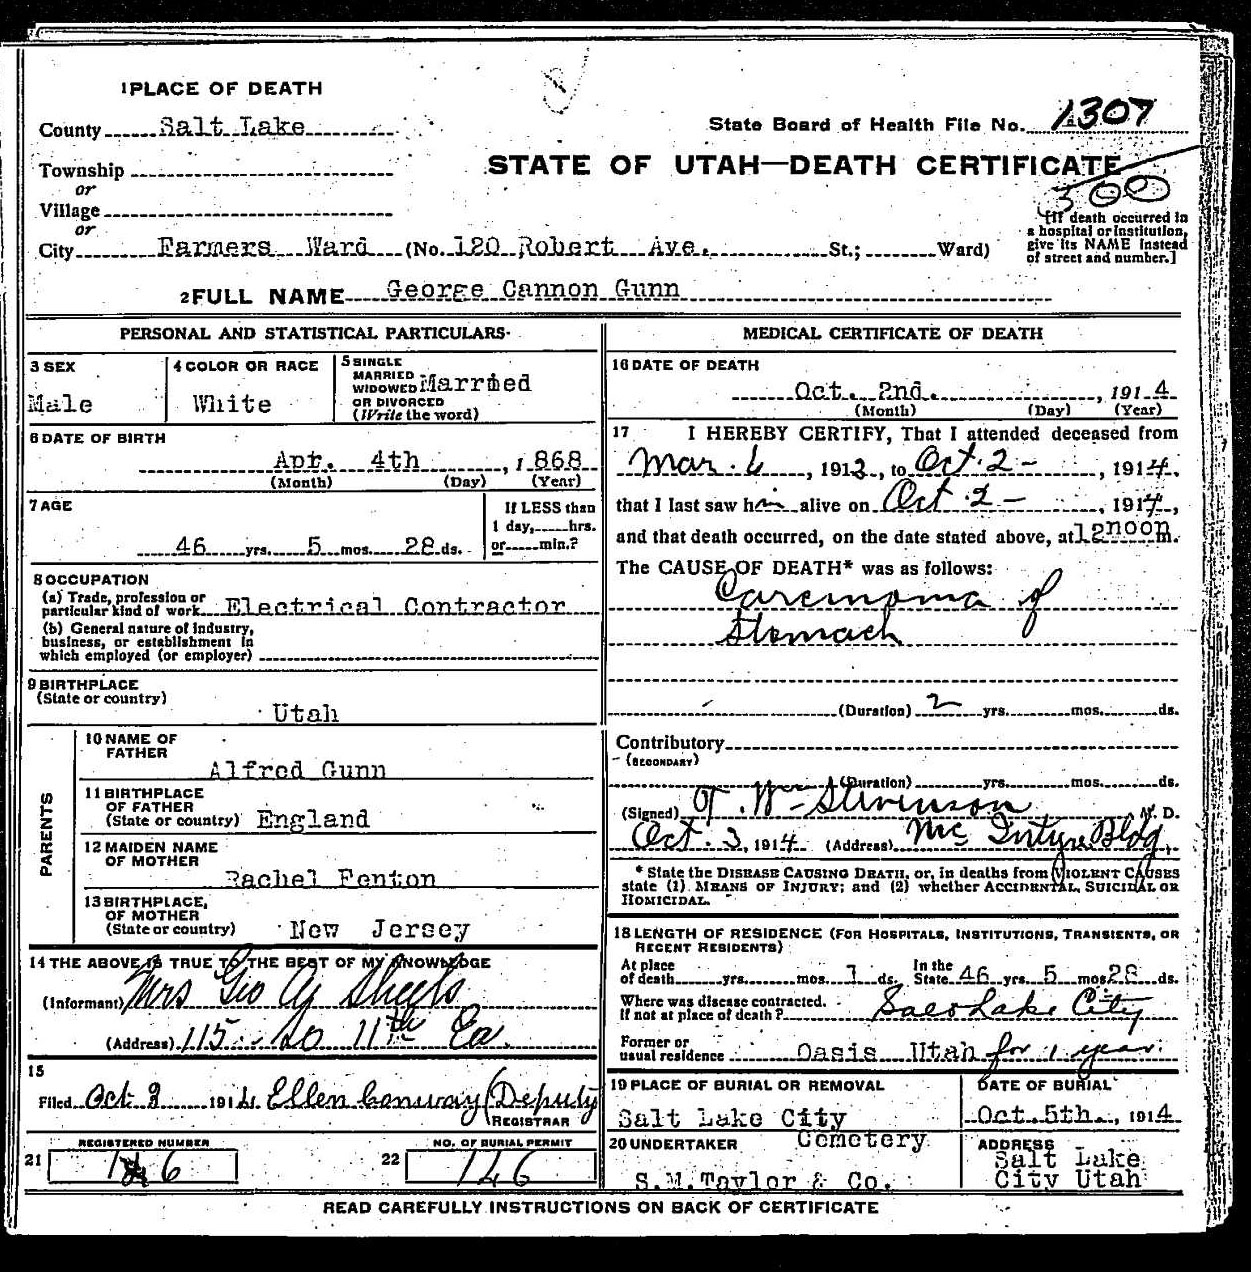 1 PLACE OF DEATH
County Salt Lake
State Board of Health File No. 1307
Township
or
Village
or
STATE OF UTAH—DEATH CERTIFICATE
300
[If death occurred in
a hospital or institution,
give its NAME instead
of street and number.]
City Farmers Ward (No. 120 Robert Ave. St.; Ward)
2 FULL NAME George Cannon Gunn
PERSONAL AND STATISTICAL PARTICULARS
3 SEX
Male
4 COLOR OR RACE
White
5 SINGLE
MARRIED
WIDOWED
OR DIVORCED
(Write the word)
Married
6 DATE OF BIRTH
Apr. 4th, 1868
(Month) (Day) (Year)
7 AGE
46 yrs. 5 mos. 28 ds.
If LESS than
1 day, hrs.
or min.?
8 OCCUPATION
(a) Trade, profession or
particular kind of work Electrical Contractor
(b) General nature of industry,
business, or establishment in
which employed (or employer)
9 BIRTHPLACE
(State or country)
Utah
PARENTS
10 NAME OF
FATHER
Alfred Gunn
11 BIRTHPLACE
OF FATHER
(State or country) England
12 MAIDEN NAME
OF MOTHER
Rachel Fenton
13 BIRTHPLACE,
OF MOTHER
(State or country) New Jersey
14 THE ABOVE IS TRUE TO THE BEST OF MY KNOWLEDGE
(Informant) Mrs Geo Sheets
(Address) 115 So 11th Ea.
15
Filed Oct 1914 Ellen Conway (Deputy
REGISTRAR
REGISTERED NUMBER
21 6
NO. OF BURIAL PERMIT
22 146
MEDICAL CERTIFICATE OF DEATH
16 DATE OF DEATH
Oct. 2nd., 1914
(Month) (Day) (Year)
17 I HEREBY CERTIFY, That I attended deceased from
Mar. 6, 1913, to Oct. 2-, 1914,
that I last saw him alive on Oct. 2-, 1914,
and that death occurred, on the date stated above, at 12noon m.
The CAUSE OF DEATH* was as follows:
Carcinoma of
Stomach
(Duration) 2 yrs. mos. ds.
Contributory
(SECONDARY)
(Duration) yrs. mos. ds.
(Signed) Wm Stevenson M. D.
Oct. 3, 1914 (Address) McIntyre Bldg.
* State the DISEASE CAUSING DEATH, or, in deaths from VIOLENT CAUSES
state (1) MEANS OF INJURY; and (2) whether ACCIDENTAL, SUICIDAL OR
HOMICIDAL.
18 LENGTH OF RESIDENCE (FOR HOSPITALS, INSTITUTIONS, TRANSIENTS, OR
RECENT RESIDENTS)
At place
of death yrs. mos. 1 ds. In the
State 46 yrs. 5 mos. 28 ds.
Where was disease contracted.
If not at place of death? Salt Lake City
Former or
usual residence Oasis Utah for 1 year.
19 PLACE OF BURIAL OR REMOVAL
Salt Lake City
Cemetery
DATE OF BURIAL
Oct. 5th., 1914
20 UNDERTAKER
S.M. Taylor & Co.
ADDRESS
Salt Lake
City Utah
READ CAREFULLY INSTRUCTIONS ON BACK OF CERTIFICATE